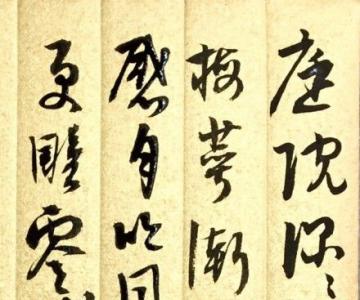 庭院深〻
梅萼漸
感月吟
更雕零